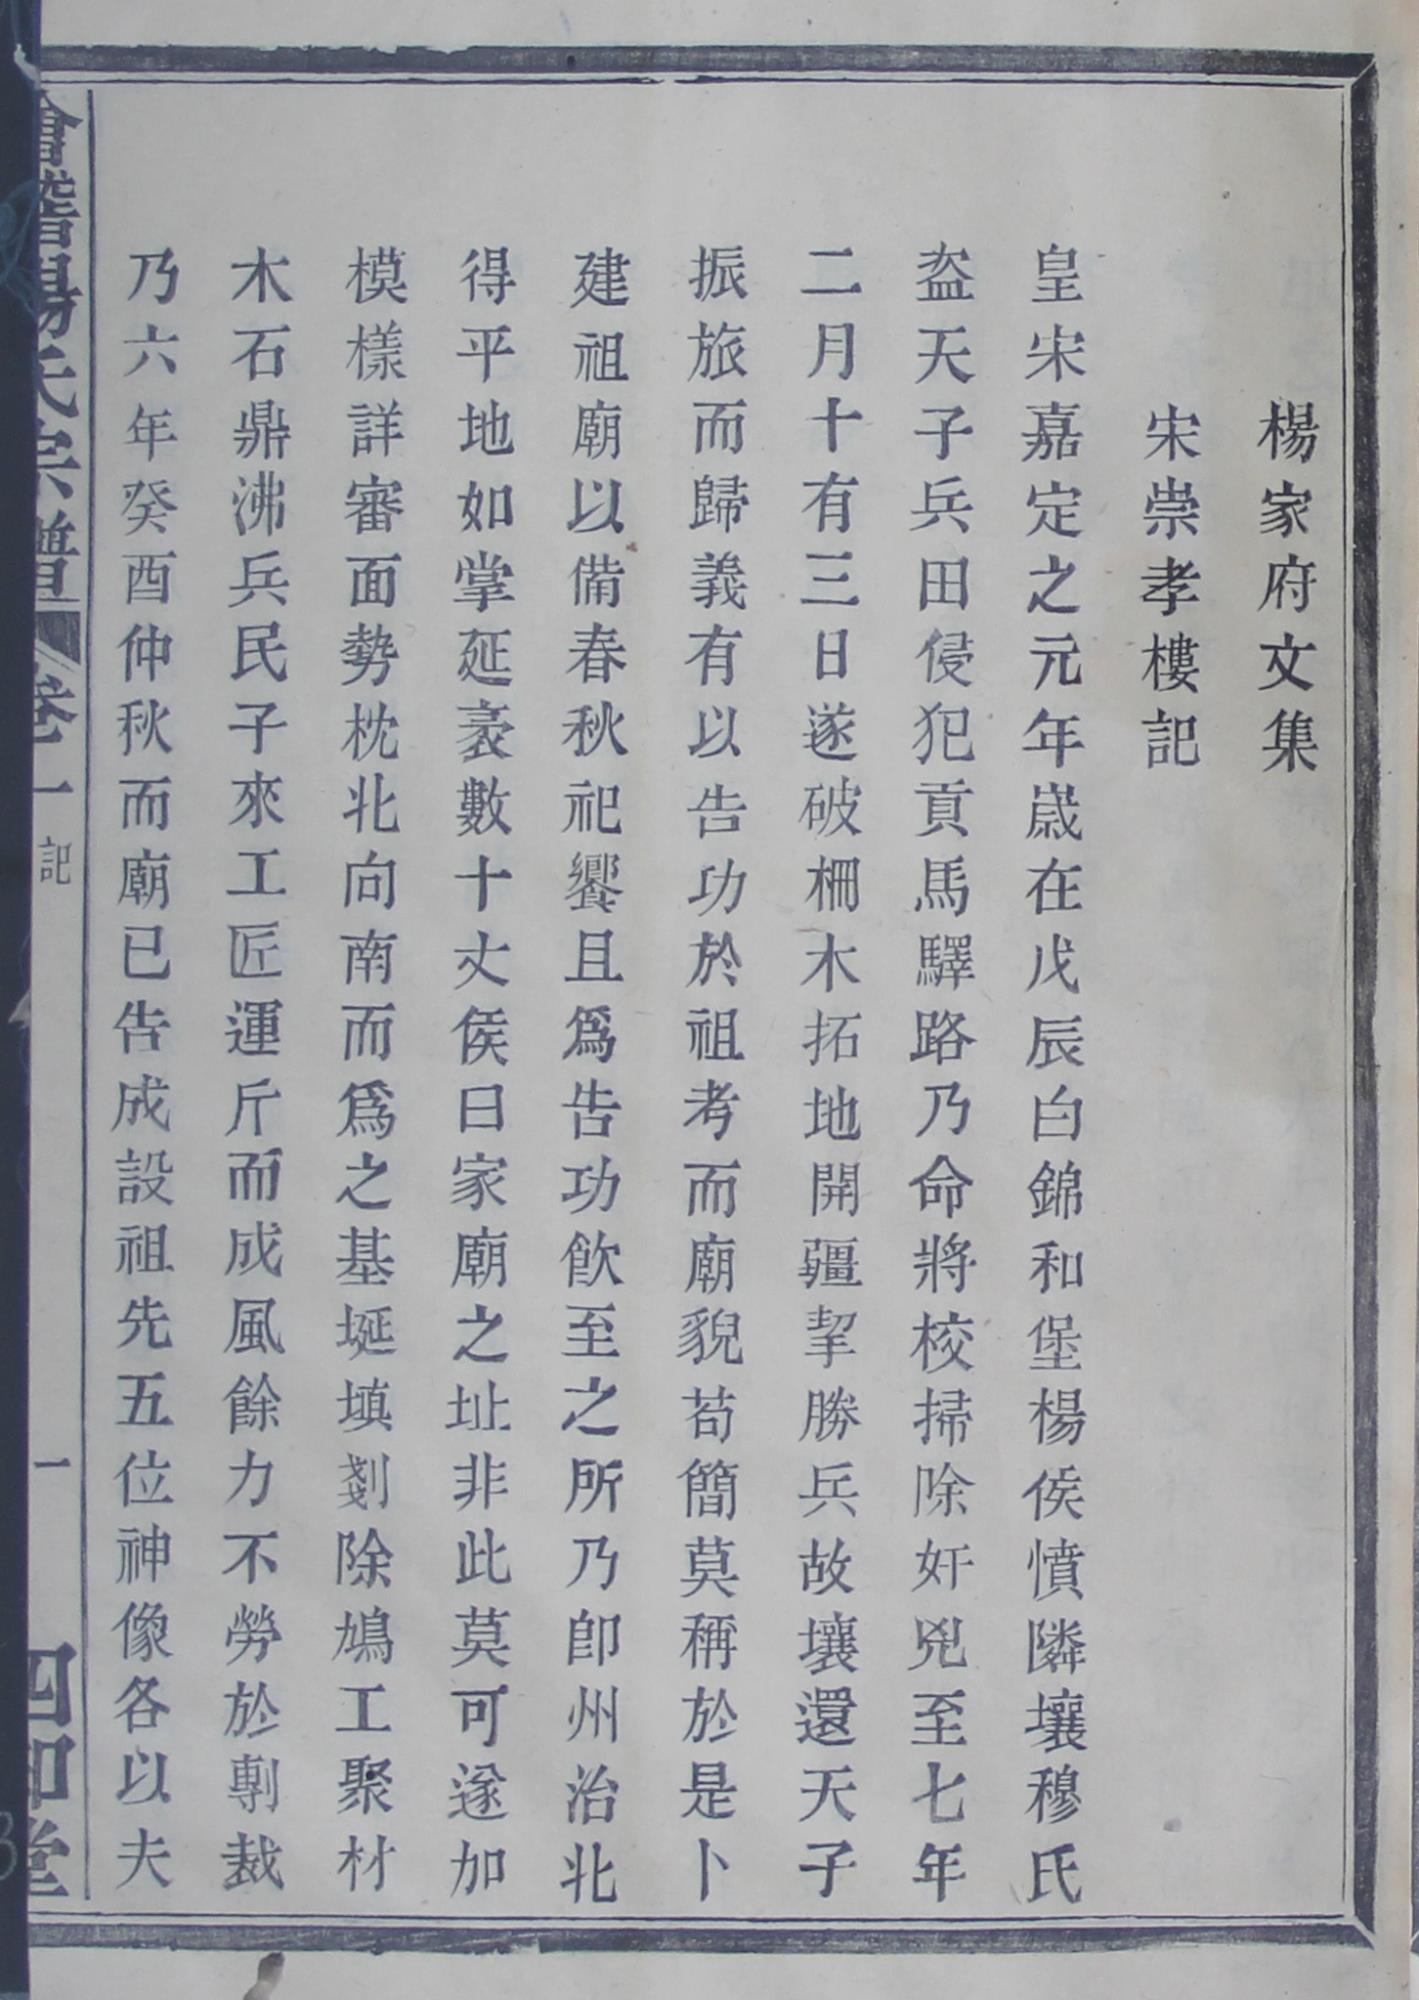 楊家府文集
宋崇孝樓記
皇宋嘉定之元年歲在戊辰白錦和堡楊侯憤隣壤穆氏
盜天子兵田侵犯貢馬驛路乃命將校掃除奸兇至七年
二月十有三日遂破柵木拓地開疆挈勝兵故壤還天子
振旅而歸義有以告功於祖考而廟貌苟簡莫稱於是卜
建祖廟以備春秋祀饗且爲告功飲至之所乃卽州治北
得平地如掌延袤數十丈侯曰家廟之址非此莫可遂加
模樣詳審面勢枕北向南而爲之基埏填剗除鳩工聚材
木石鼎沸兵民子來工匠運斤而成風餘力不勞於剸裁
乃六年癸酉仲秋而廟已告成設祖先五位神像各以夫
會稽楊氏宗譜 卷一 記 一 四知堂